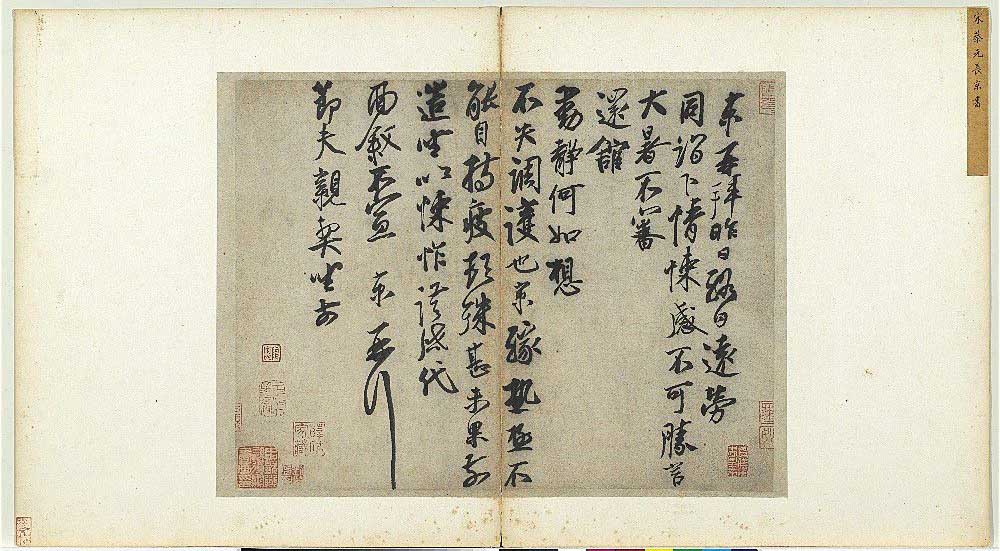 宋蔡元長京書
京再拜昨日終日遠勞
同詣下情悚感不可勝言
大暑不審
還館
動靜何如想
不失調護也京緣熱極不
能自持疲頓殊甚未果前
造坐以悚怍謹啟代
面敘不宣京再拜
節夫親契坐前